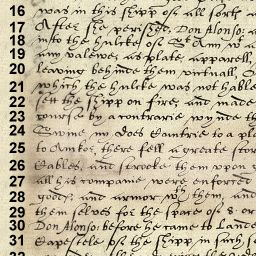 16 was in this shipp of all sort
17 After she perished, Don Alonso:
18 into the hulcke of St Ann w
19 any valewe, as plate, apparell,
20 leaving behinde them victuall,
21 which the hulcke was not hable
22 sett the shipp on fire, and made
23 course by a contrarie wynde th
24 to a pl
25 to Ankor, there fell a greate stor
26 Cables, and strooke them upon
27 all his companie were enforced
28 goods and armor wth them, and
29 them selves for the space of 8 or
30 Don Alonso: before he came to Lande
31 of the shipp, in such s
32